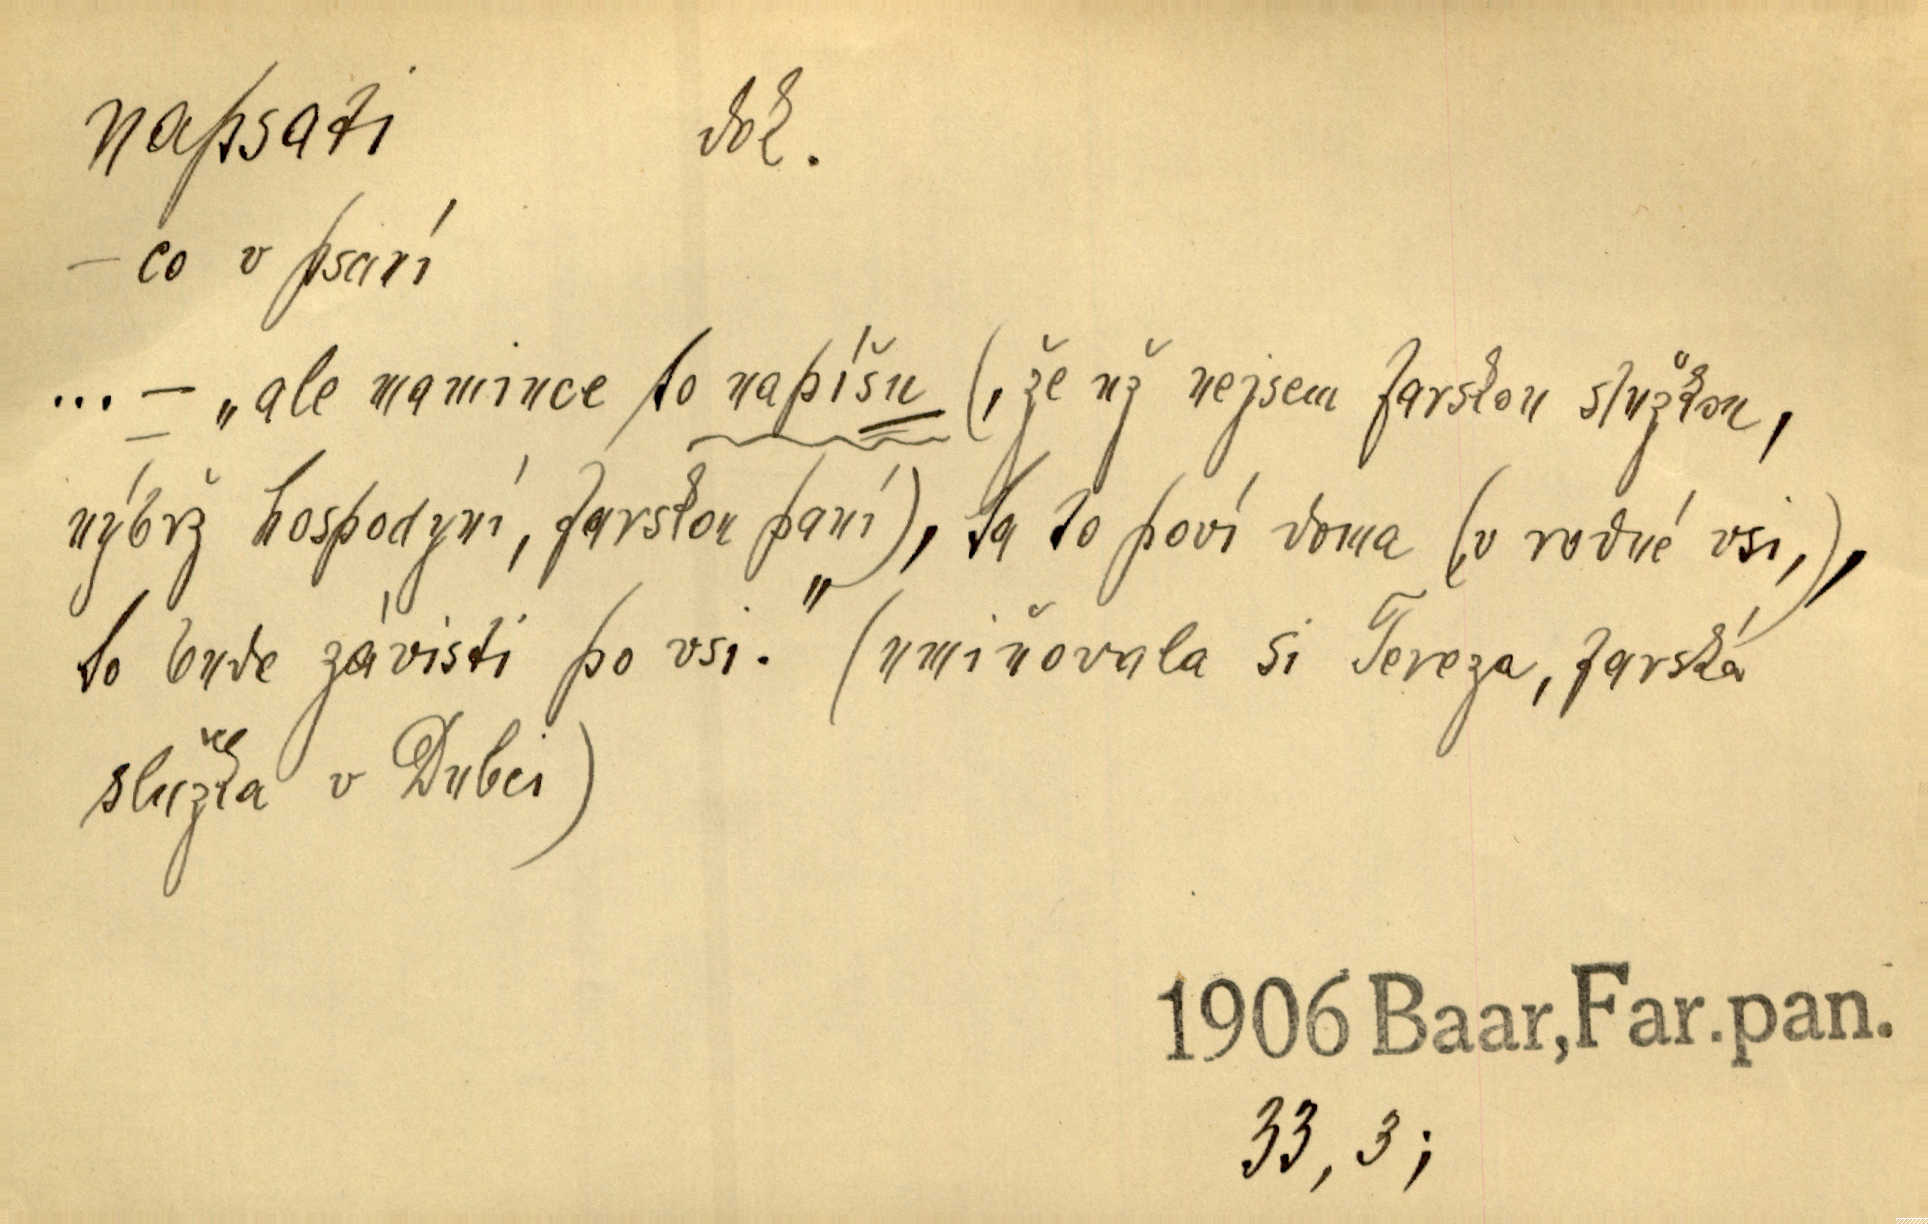 napsati dok.
– co v psaní
... – „ale mamince to napíšu (, že už nejsem farskou služkou,
nýbrž hospodyní, farskou paní), ta to poví doma (v rodné vsi,),
to bude závisti po vsi.“ (umiňovala si Tereza, farská
služka v Dubci)
1906 Baar, Far. pan.
33, 3;